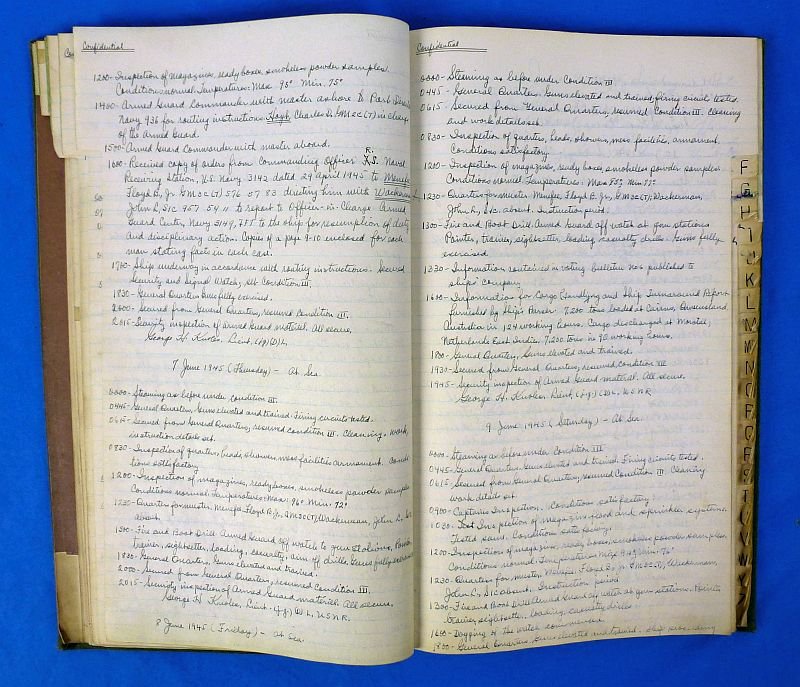 Confidential
1200- Inspection of magazines, ready boxes, smokeless powder samples.
Conditions normal. Temperatures: Max 90° Min. 75°
1400- Armed Guard Commander with master ashore to Port Director
Navy 936 for routing instructions. Hoyt, Charles S. GM2C(T) in charge
of the Armed Guard.
1500- Armed Guard Commander with master aboard.
1600- Received copy of orders from Commanding Officer R.S. Naval
Receiving Station, U.S. Navy 3142 dated 29 April 1945 to Menefee
Floyd B., Jr. GM3c(T) 576 57 83 directing him with Wackerman
John L, S1c 957 54 11 to report to Officer-in-Charge Armed
Guard Center, Navy 3149, FFT to the ship for resumption of duty
and disciplinary action. Copies of a page 9-10 enclosed for each
man stating facts in each case.
1710- Ship underway in accordance with routing instructions. Secured
Security and Signal Watch, set Condition III.
1830- General Quarters. Guns fully exercised.
2000- Secured from General Quarters, resumed Condition III.
2015- Security inspection of Armed Guard material. All secure.
George H. Knoles, Lieut. (jg) D)L,
7 June 1945 (Thursday) - At Sea
0000- Steaming as before under Condition III.
0445- General Quarters, Guns elevated and trained. Firing circuits tested.
0615- Secured from General Quarters, resumed condition III. Cleaning, work,
instruction details set.
0830- Inspection of quarters, heads, showers, mess facilities, armament. Condi-
tions satisfactory.
1200- Inspection of magazines, ready boxes, smokeless powder samples
Conditions normal. Temperatures: Max: 96° Min. 72°
1230- Quarters for muster. Menefee, Floyd B. Jr. GM3C(T), Wackerman, John L. S1c
absent.
1300- Fire and Boat Drill. Armed Guard off watch to gun stations. Pointer
trainer, sightsetter, loading, security, aim off drills. Guns fully exercised
1830- General Quarters, Guns elevated and trained.
2000- Secured from General Quarters, resumed Condition III.
2015- Security inspection of Armed Guard material. All secure.
George H. Knoles, Lieut. (jg) D)L, USNR.
8 June 1945 (Friday) - At Sea
Confidential
0000- Steaming as before under Condition III
0445- General Quarters. Guns elevated and trained, firing circuits tested.
0615- Secured from General Quarters, resumed Condition III. Cleaning
and work details set.
0830- Inspection of quarters, heads, showers, mess facilities, armament.
Conditions satisfactory.
1200- Inspection of magazines, ready boxes, smokeless powder samples
Conditions normal. Temperatures: Max 85°, Min 73°
1230- Quarters for muster. Menefee, Floyd B. Jr. GM3C(T), Wackerman,
John L., S1c. absent. Instruction period.
1300- Fire and Boat Drill. Armed Guard off watch at gun stations
Pointer, trainer, sightsetter, loading, casualty drills. Guns fully
exercised
1330- Information contained in voting Bulletin No 6 published to
ships' company
1600- Information for Cargo Handling and Ship Turnaround Report
furnished by Ship's Purser. 7,200 tons loaded at Cairns, Queensland
Australia in 124 working hours. Cargo discharged at Morotai,
Netherlands East Indies, 7,200 tons in 90 working hours.
1800- General Quarters, Guns elevated and trained.
1930- Secured from General Quarters, resumed Condition III
1945- Security inspection of Armed Guard material. All secure.
George H. Knoles, Lieut. (jg) D)L, U.S.N.R.
9 June 1945 (Saturday) - At Sea
0000- Steaming as before under Condition III
0445- General Quarters. Guns elevated and trained. Firing circuits tested.
0615- Secured from General Quarters, resumed Condition III. Cleaning
work details set.
0900- Captains Inspection. Conditions satisfactory.
1030- Test Inspection of magazine flood and sprinkler systems.
Tested same. Conditions satisfactory.
1200- Inspection of magazines, ready boxes, smokeless powder samples.
Conditions normal. Temperatures Max Min. 76°
1230- Quarters for muster. Menefee, Floyd B. Jr. GM3C(T), Wackerman,
John L., S1c absent. Instruction period
1300- Fire and Boat Drill. Armed Guard off watch at gun stations. Pointer,
trainer, sightsetter, loading, casualty drills.
1600- Dogging of the watch commenced
1800- General Quarters, Guns elevated and trained. Ship
F
G
H
I
J
K
L
M
N
O
P
Q
R
S
T
U
V
W